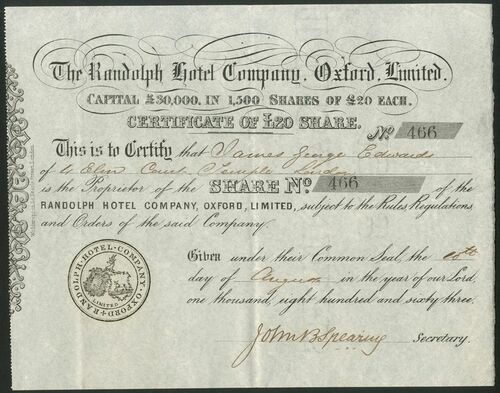 The Randolph Hotel Company, Oxford, Limited.
CAPITAL £30,000, IN 1,500 SHARES OF £20 EACH.
CERTIFICATE OF £20 SHARE.
No 466
This is to Certify that James George Edwards
of 4 Elm Court Temple London
is the Proprietor of the SHARE No 466 of the
RANDOLPH HOTEL COMPANY, OXFORD, LIMITED, subject to the Rules, Regulations,
and Orders of the said Company.
Given under their Common Seal, the
day of August in the year of our Lord,
one thousand, eight hundred and sixty three.
RANDOLPH·HOTEL·COMPANY·OXFORD
LIMITED
John B Spearing Secretary.